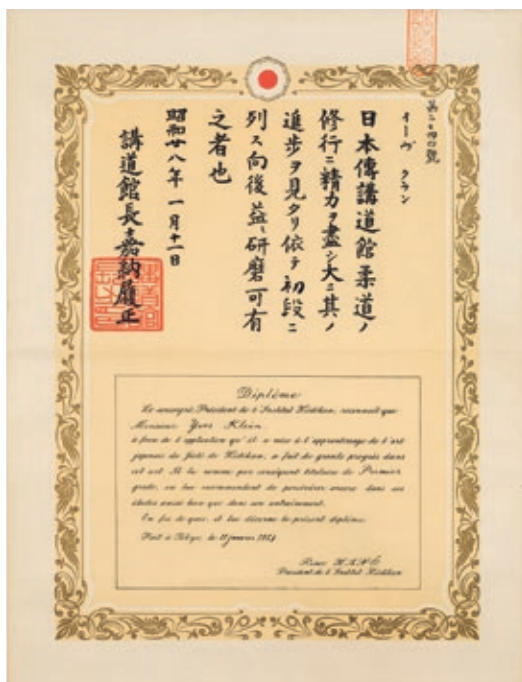 イーヴ クラン
日本傳講道館柔道ノ
修行ニ精力ヲ盡シ大ニ其ノ
進歩ヲ見タリ依テ初段ニ
列ス向後益〻研磨可有
之者也
昭和廿八年一月十一日
講道館長嘉納履正
Diplôme
Le soussigné, Président de l'Institut Kôdôkan, reconnaît que
Monsieur Yves Klein,
à force de l'application qu'il a mise à l'apprentissage de l'art
japonais du Judô de Kôdôkan, a fait de grands progrès dans
cet art. Il le nomme par conséquent titulaire du Premier
grade, en lui recommandant de persévérer encore dans ses
études aussi bien que dans son entraînement.
En foi de quoi, il lui décerne le présent diplôme.
Fait à Tokyo, le 11 janvier
Risei KANÔ
Président de l'Institut Kôdôkan